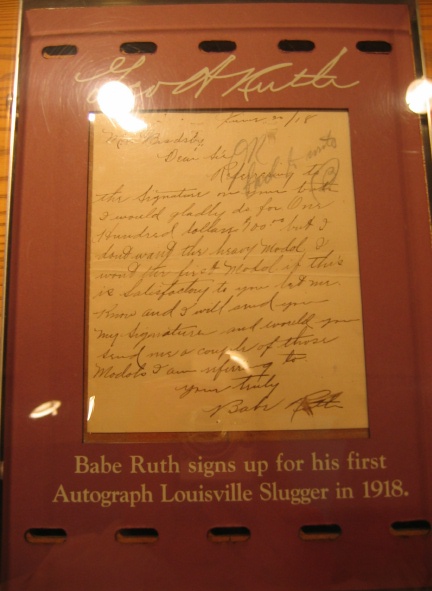 Geo H Ruth
June 20/18
Mr. Bradsby
Dear Sir
Refuring to
the Signature on your bats
I would gladly do for One
Hundred dollars $100.00 but I
dont want the heavy Modol I
want the first Modol if this
is Satisfactory to you let me
Know and I will send you
my signature and would you
send me a couple of those
Modols I am refuring to
Your truly
Babe Ruth
Babe Ruth signs up for his first
Autograph Louisville Slugger in 1918.